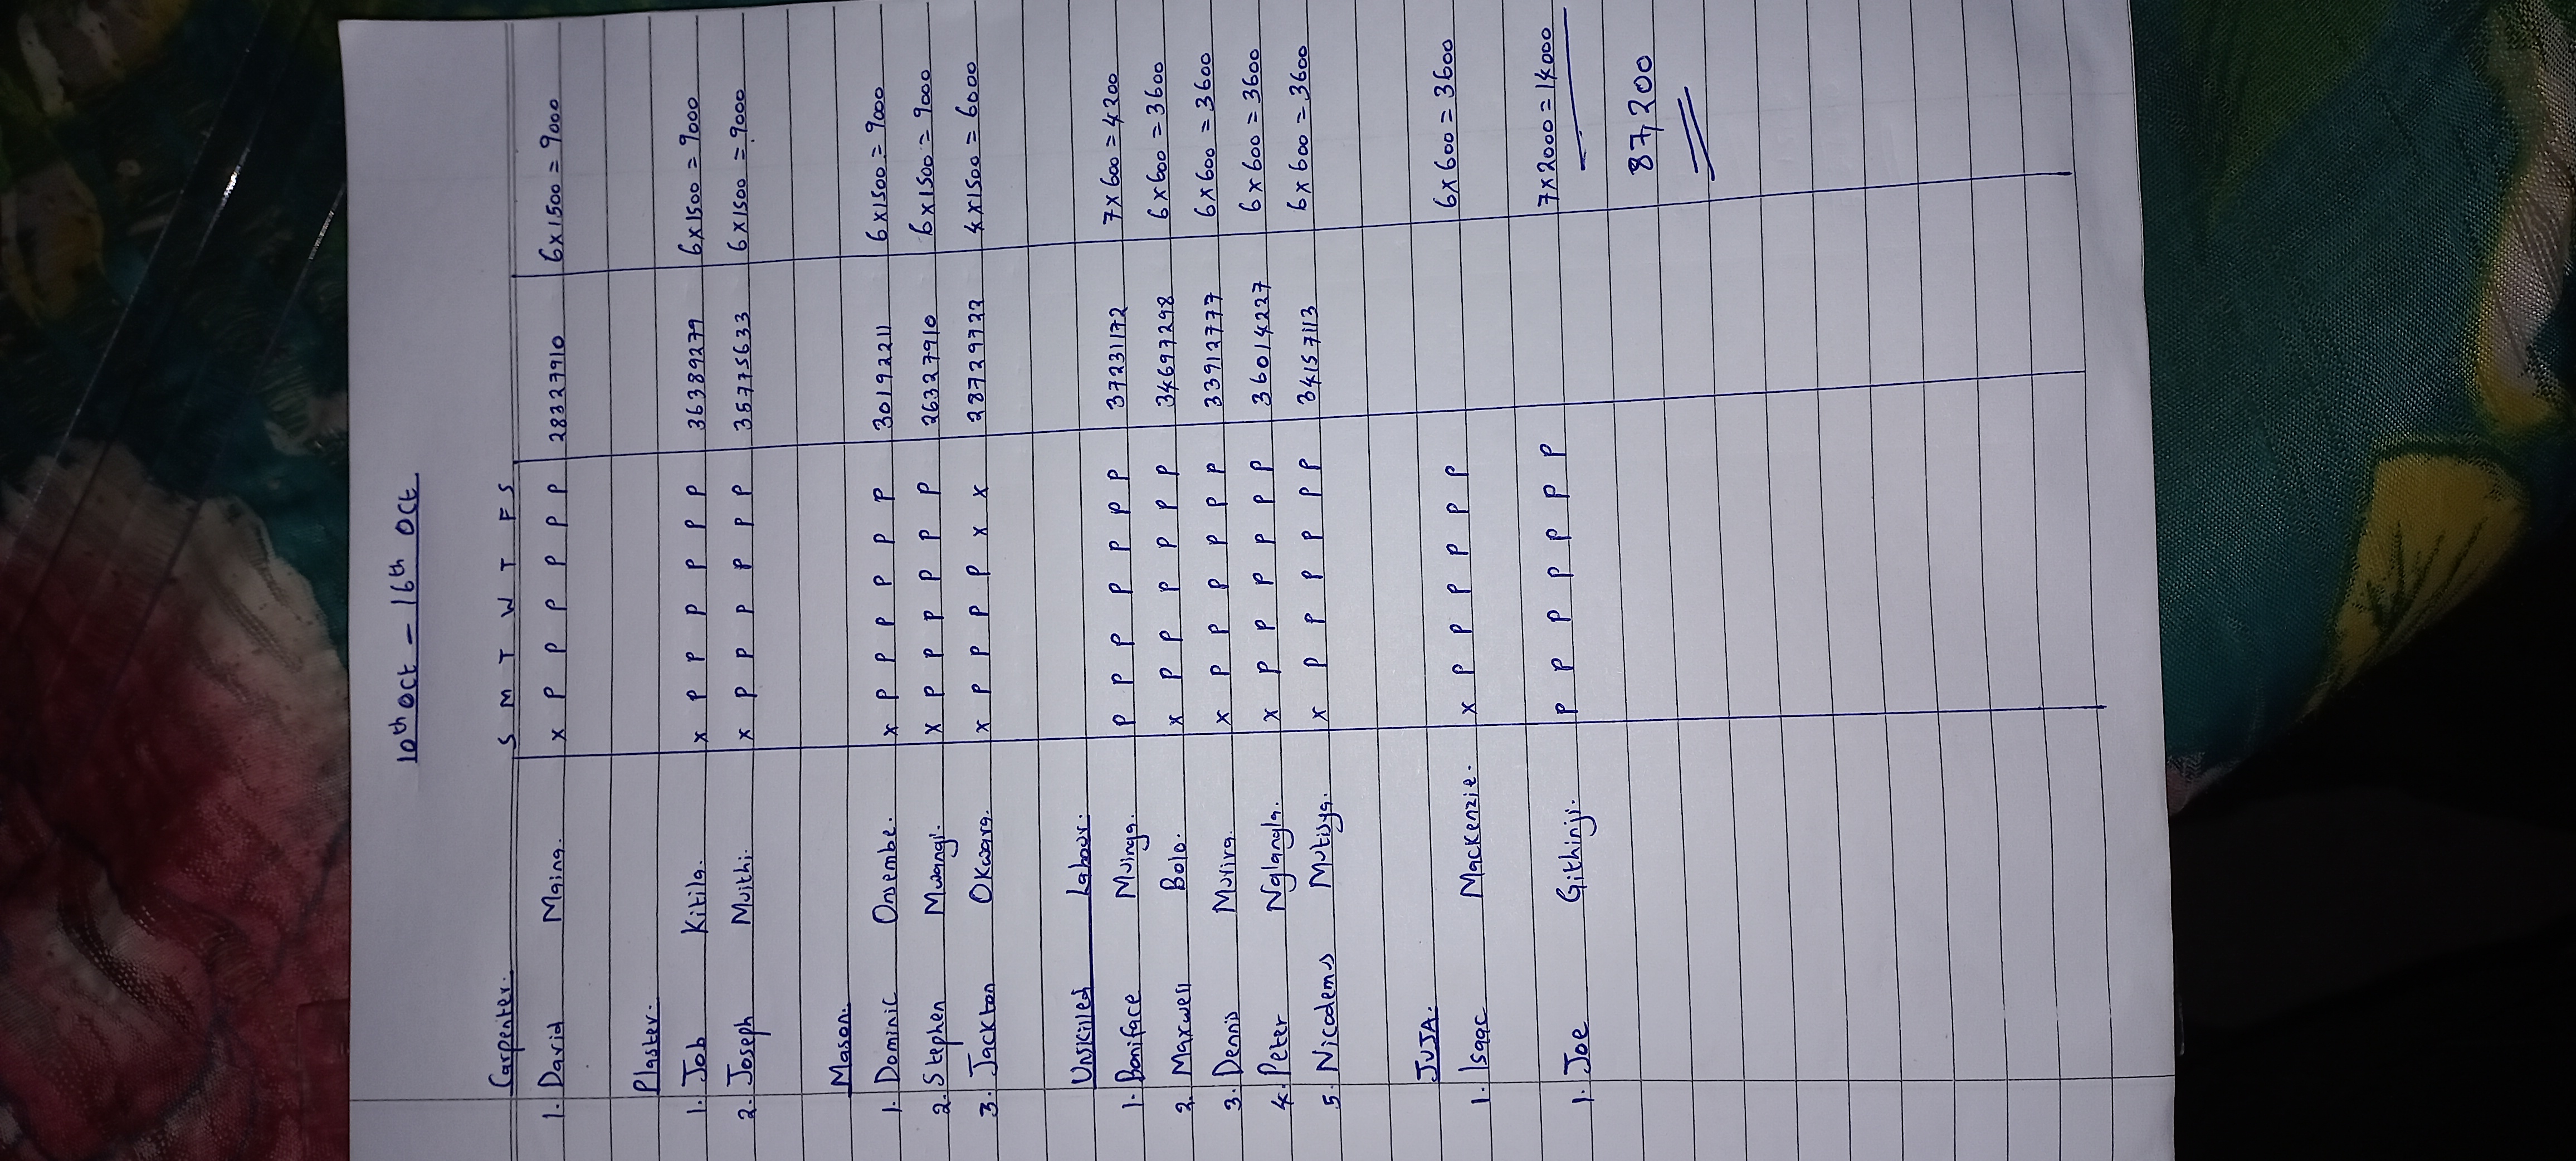 10th Oct - 16th Oct
Carpenter. S M T W T F S
1. David Maina. x P P P P P P 28327910 6x1500 = 9000
Plaster.
1. Job Kitila. x P P P P P P 36389279 6x1500 = 9000
2. Joseph Muithi. x P P P P P P 35775633 6x1500 = 9000
Mason.
1. Dominic Onsembe. x P P P P P P 30192211 6x1500 = 9000
2. Stephen Mwangi. x P P P P P P 26327910 6x1500 = 9000
3. Jackton Okwara. x P P P P x x 28729722 4x1500 = 6000
Unskilled Labour.
1. Boniface Muinga. P P P P P P P 37231172 7x600 = 4200
2. Maxwell Bolo. x P P P P P P 34697298 6x600 = 3600
3. Dennis Murira. x P P P P P P 33912777 6x600 = 3600
4. Peter Nglangla. x P P P P P P 36014227 6x600 = 3600
5. Nicodemus Mutisya. x P P P P P P 34157113 6x600 = 3600
JUJA.
1. Isaac Mackenzie. x P P P P P P 6x600 = 3600
1. Joe Githinji. P P P P P P P 7x2000 = 14000
87,200